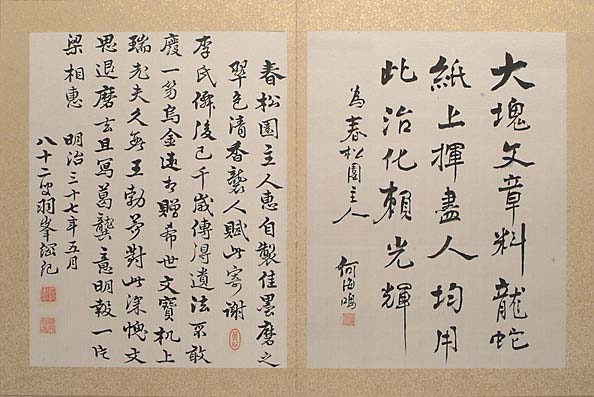 大塊文章料龍蛇
紙上揮盡人均用
此治化賴光輝
為春松園主人
何海鳴
春松園主人惠自製佳墨磨之
翠色清香襲人賦此寄謝
李氏僊後已千歲傳得遺法不敢
廢一笏烏金遠相贈希世文寶机上
瑞老夫久無王勃夢對此深愧文
思退磨玄且寫葛龔意明報一片
梁相惠 明治三十七年五月
八十二叟羽峯綱紀